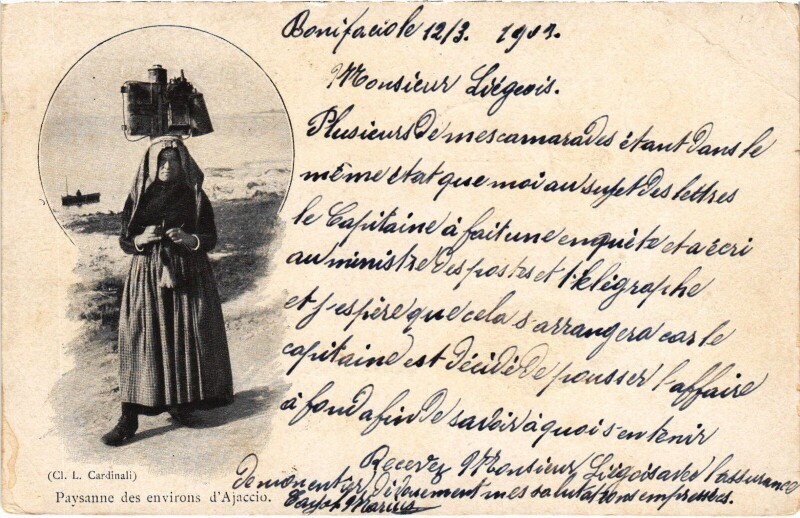 Bonifacio le 12/3. 1904.
Monsieur Liégeois.
Plusieurs de mes camarades étant dans le
même état que moi au sujet des lettres
le Capitaine à fait une enquête et a écri
au ministre des postes et télégraphe
et j'espère que cela s'arrangera car le
capitaine est décidé de pousser l'affaire
à fond afin de savoir à quoi s'en tenir
Recevez Monsieur Liégeois avec l'assurance
de mon entier dévouement mes salutations empressées.
Marius
(Cl. L. Cardinali)
Paysanne des environs d'Ajaccio.